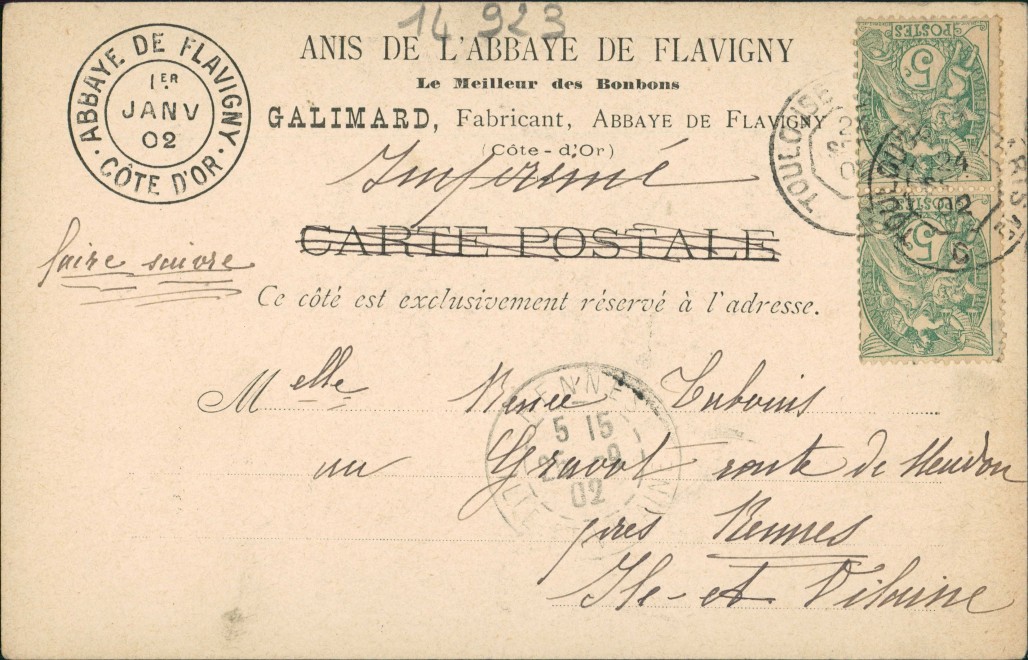 14 923
ABBAYE DE FLAVIGNY
1ER
JANV
02
· CÔTE D'OR ·
ANIS DE L'ABBAYE DE FLAVIGNY
Le Meilleur des Bonbons
GALIMARD, Fabricant, ABBAYE DE FLAVIGNY
(Côte-d'Or)
Imprimé
CARTE POSTALE
faire suivre
Ce côté est exclusivement réservé à l'adresse.
POSTES
5c
POSTES
5c
TOULOUSE
24
02
Melle Renée Tuboins
au Gravot route de Meudon
près Rennes
Ile-et Vilaine
RENNES
5 15
25 -9
02
ILLE